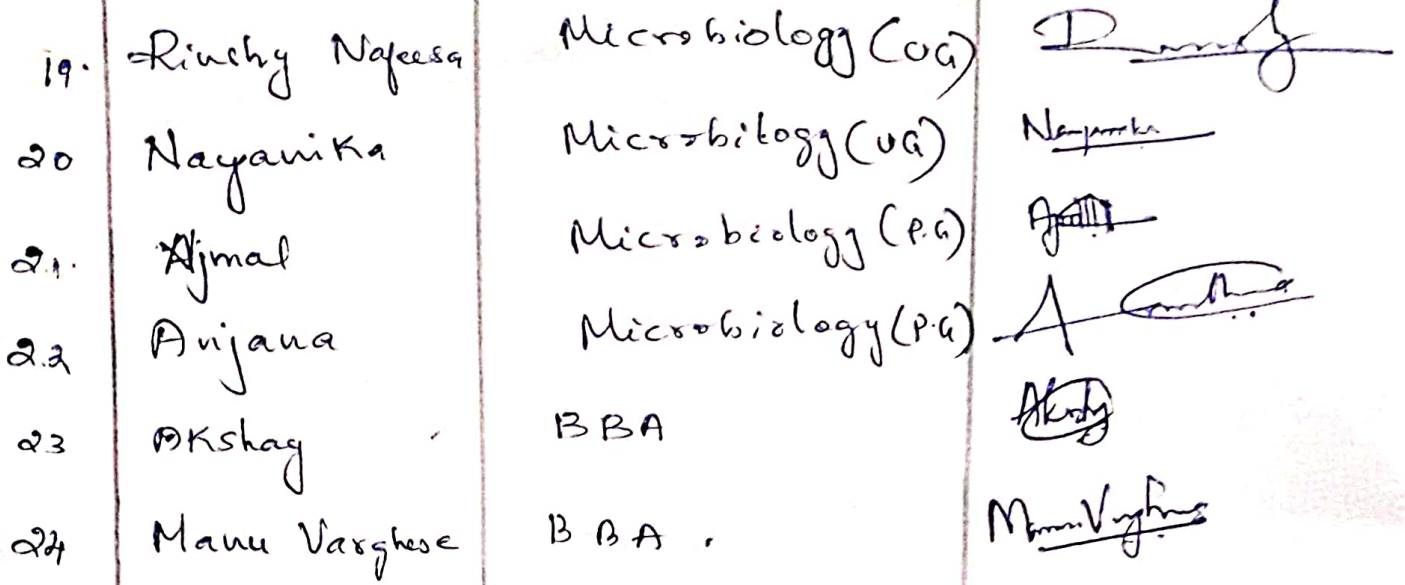 19. Rinshy Nafeesa Microbiology (UG)
20 Nayanika Microbitogy (UG)
21. Ajmal Microbiology (P.G)
22 Anjana Microbiology (P.G)
23 Akshay BBA Akshay
24 Manu Varghese BBA. Manu Varghese